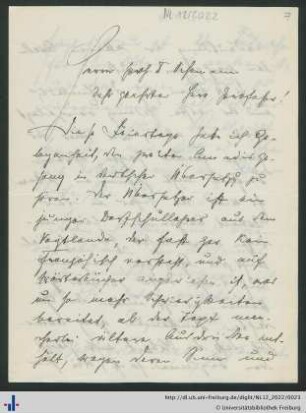 Nl 12/2022
Herrn Prof. D
Sehr geehrter Herr Professor!
Diese Feiertage habe ich Ge-
legenheit, den zweiten
in deutscher Übersetzg zu
Der Übersetzer ist ein
junger Dorfschullehrer aus dem
Vogtlande, der fast gar kein
Französisch versteht, und auf
Wörterbücher angewiesen ist, was
um so mehr Schwierigkeiten
bereitet, als der Text man-
cherlei ältere Ausdrücke ent-
hält, wegen deren Sinn und
http://dl.ub.uni-freiburg.de/diglit/NL12_2022/0021
© Universitätsbibliothek Freiburg